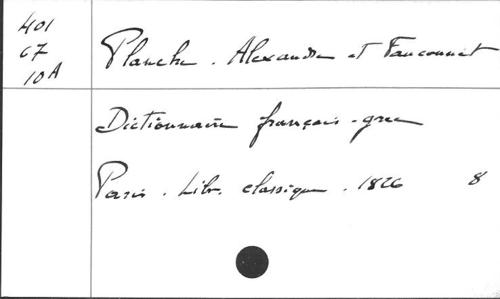 401
67
10A
Planche. Alexandre et Fauconnet
Dictionnaire français-grec
Paris. Libr. classique. 1826 8